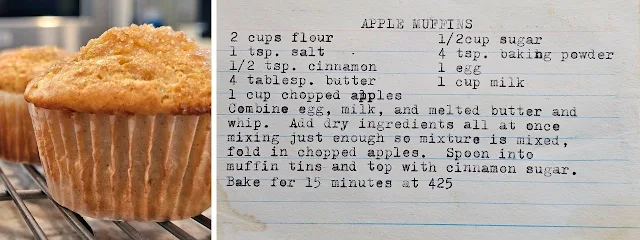 APPLE MUFFINS
2 cups flour 1/2cup sugar
1 tsp. salt 4 tsp. baking powder
1/2 tsp. cinnamon 1 egg
4 tablesp. butter 1 cup milk
1 cup chopped apples
Combine egg, milk, and melted butter and
whip. Add dry ingredients all at once
mixing just enough so mixture is mixed,
fold in chopped apples. Spoon into
muffin tins and top with cinnamon sugar.
Bake for 15 minutes at 425